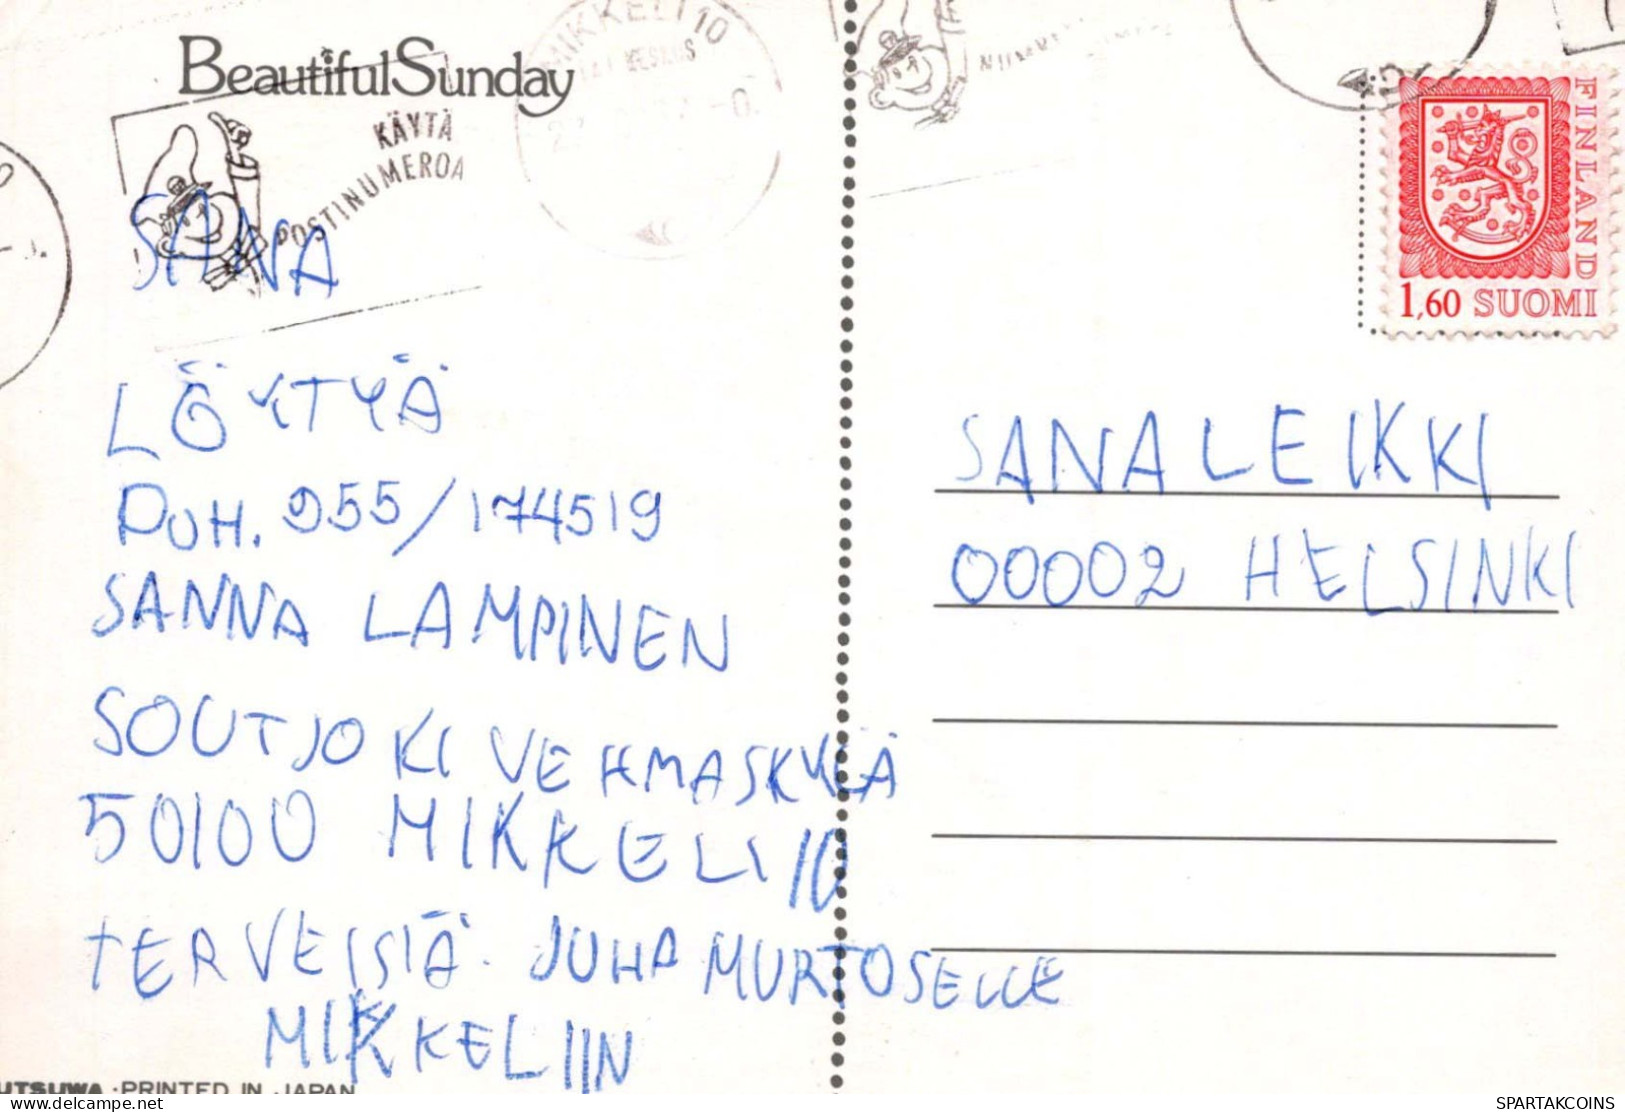 BeautifulSunday
MIKKELI 10
KÄYTÄ
POSTINUMEROA
FINLAND
1,60 SUOMI
SANA
LÖYTYÄ
PUH. 955/174519
SANNA LAMPINEN
SOUTJOKI VEHMASKYLÄ
50100 MIKKELI 10
TERVEISIÄ. JUHA MURTOSELLE
MIKKELIIN
SANALEIKKI
00002 HELSINKI
UTSUWA · PRINTED IN JAPAN
SPARTAKCOINS